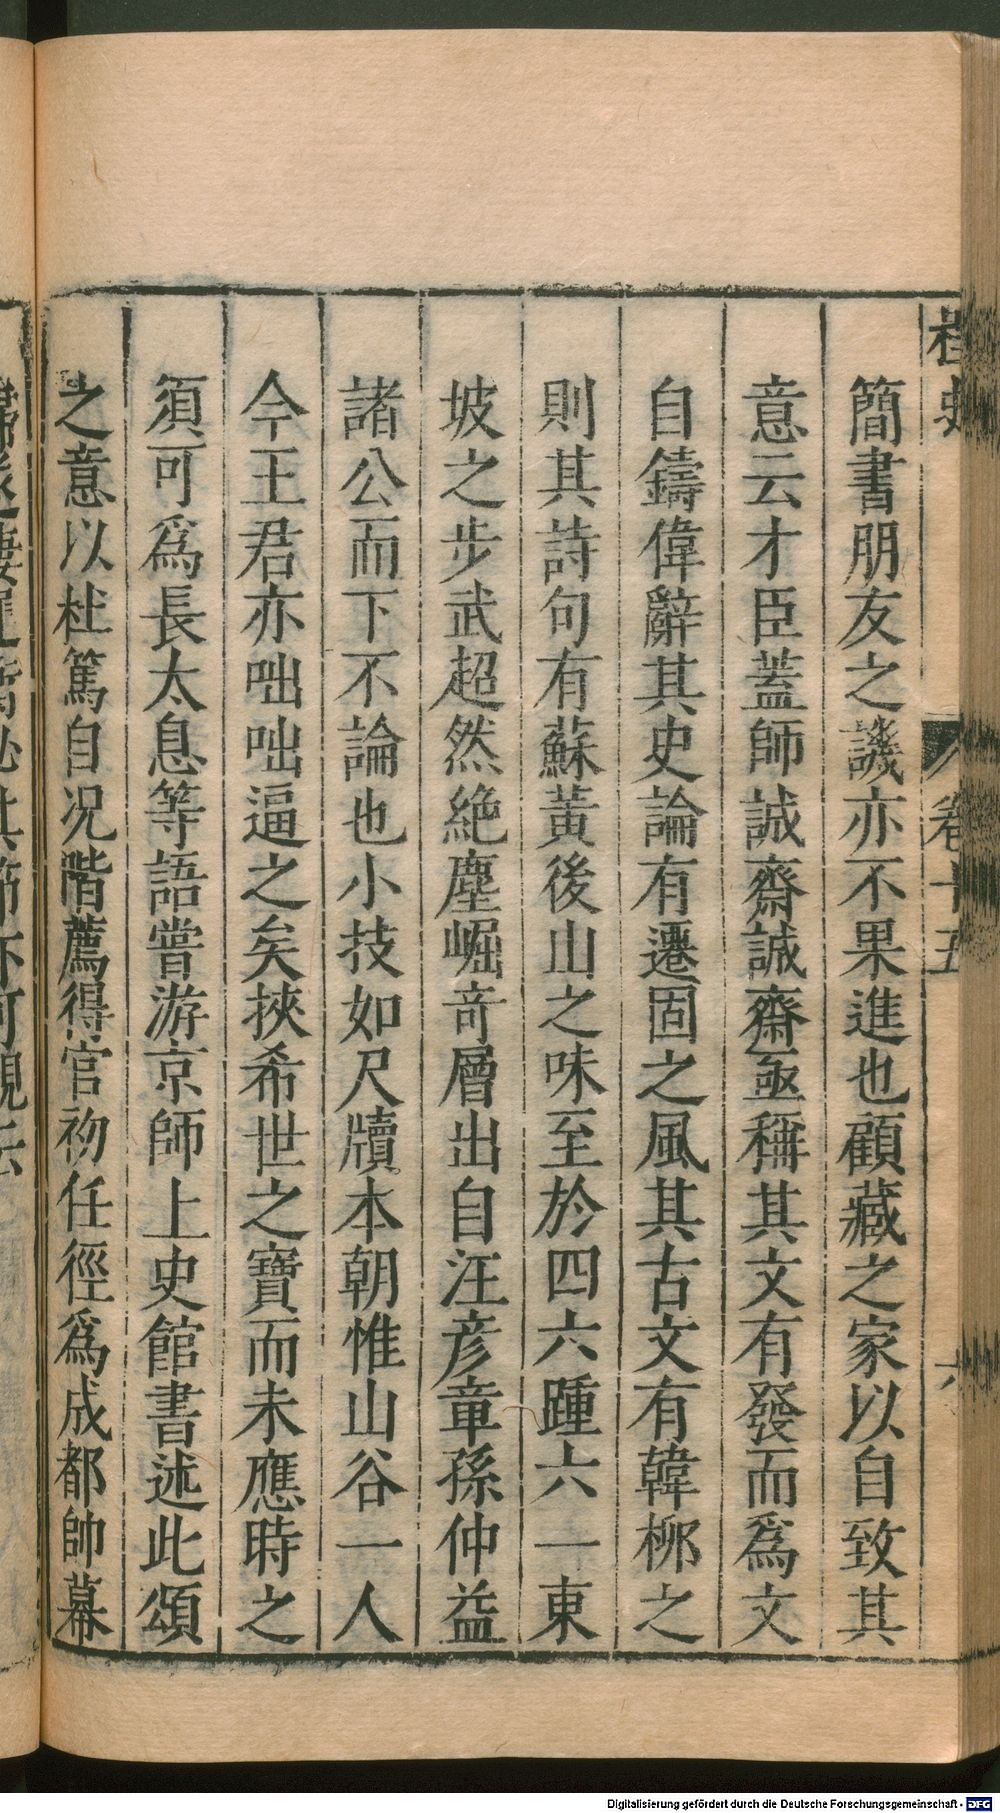 桯史
卷十五
六
簡書朋友之譏亦不果進也顧藏之家以自致其
意云才臣蓋師誠齋誠齋亟稱其文有發而爲文
自鑄偉辭其史論有遷固之風其古文有韓柳之
則其詩句有蘇黃後山之味至於四六踵六一東
坡之步武超然絶塵崛奇層出自汪彦章孫仲益
諸公而下不論也小技如尺牘本朝惟山谷一人
今王君亦咄咄逼之矣挾希世之寶而未應時之
須可爲長太息等語嘗游京師上史館書述此頌
之意以杜篤自况階薦得官初任徑爲成都帥幕
Digitalisierung gefördert durch die Deutsche Forschungsgemeinschaft - DFG